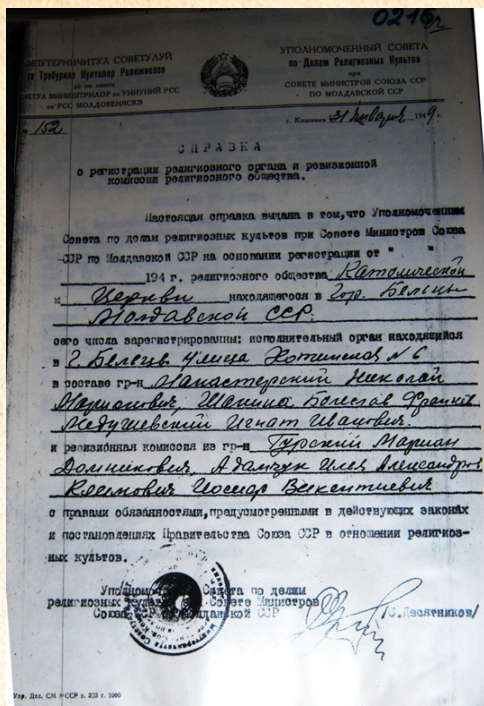 0216
ЫМПУТЕРНИЧИТУЛ СОВЕТУЛУЙ
УПОЛНОМОЧЕННЫЙ СОВЕТА
Требуриле Култелор Религиоасе
по Делам Религиозных Культов
де пе лынгэ
при
СОВЕТУЛ МИНИШТРИЛОР ал УНИУНИЙ РСС
СОВЕТЕ МИНИСТРОВ СОЮЗА ССР
ын РСС МОЛДОВЕНЯСКЭ
ПО МОЛДАВСКОЙ ССР
№ 152
г. Кишинев 31 января 1949 г.
СПРАВКА
о регистрации религиозного органа и ревизионной
комиссии религиозного общества.
Настоящая справка выдана в том, что Уполномоченным
Совета по делам религиозных культов при Совете Министров Союза
ССР по Молдавской ССР на основании регистрации от " "
194 г. религиозного общества Католической
Церкви находящегося в Гор. Бельцы
Молдавской ССР.
сего числа зарегистрированы: исполнительный орган находящийся
в г. Бельцы улица Хотинская № 6
в составе гр-н Манастерский Николай
Марианович, Шапина Болеслав Франков.
Медушевский Игнат Иванович.
и ревизионная комиссия из гр-н Гурский Мариан
Домникович, Адамчук Илья Александров
Климович Иосиф Викентиевич
с правами обязанностями, предусмотренными в действующих законах
и постановлениях Правительства Союза ССР в отношении религиоз-
ных культов.
Уполномоченный Совета по делам
религиозных культов Совете Министров
Союза ССР по Молдавской ССР /С.Десятников/
Упр. Дел. СМ МССР з. 353 т. 1000